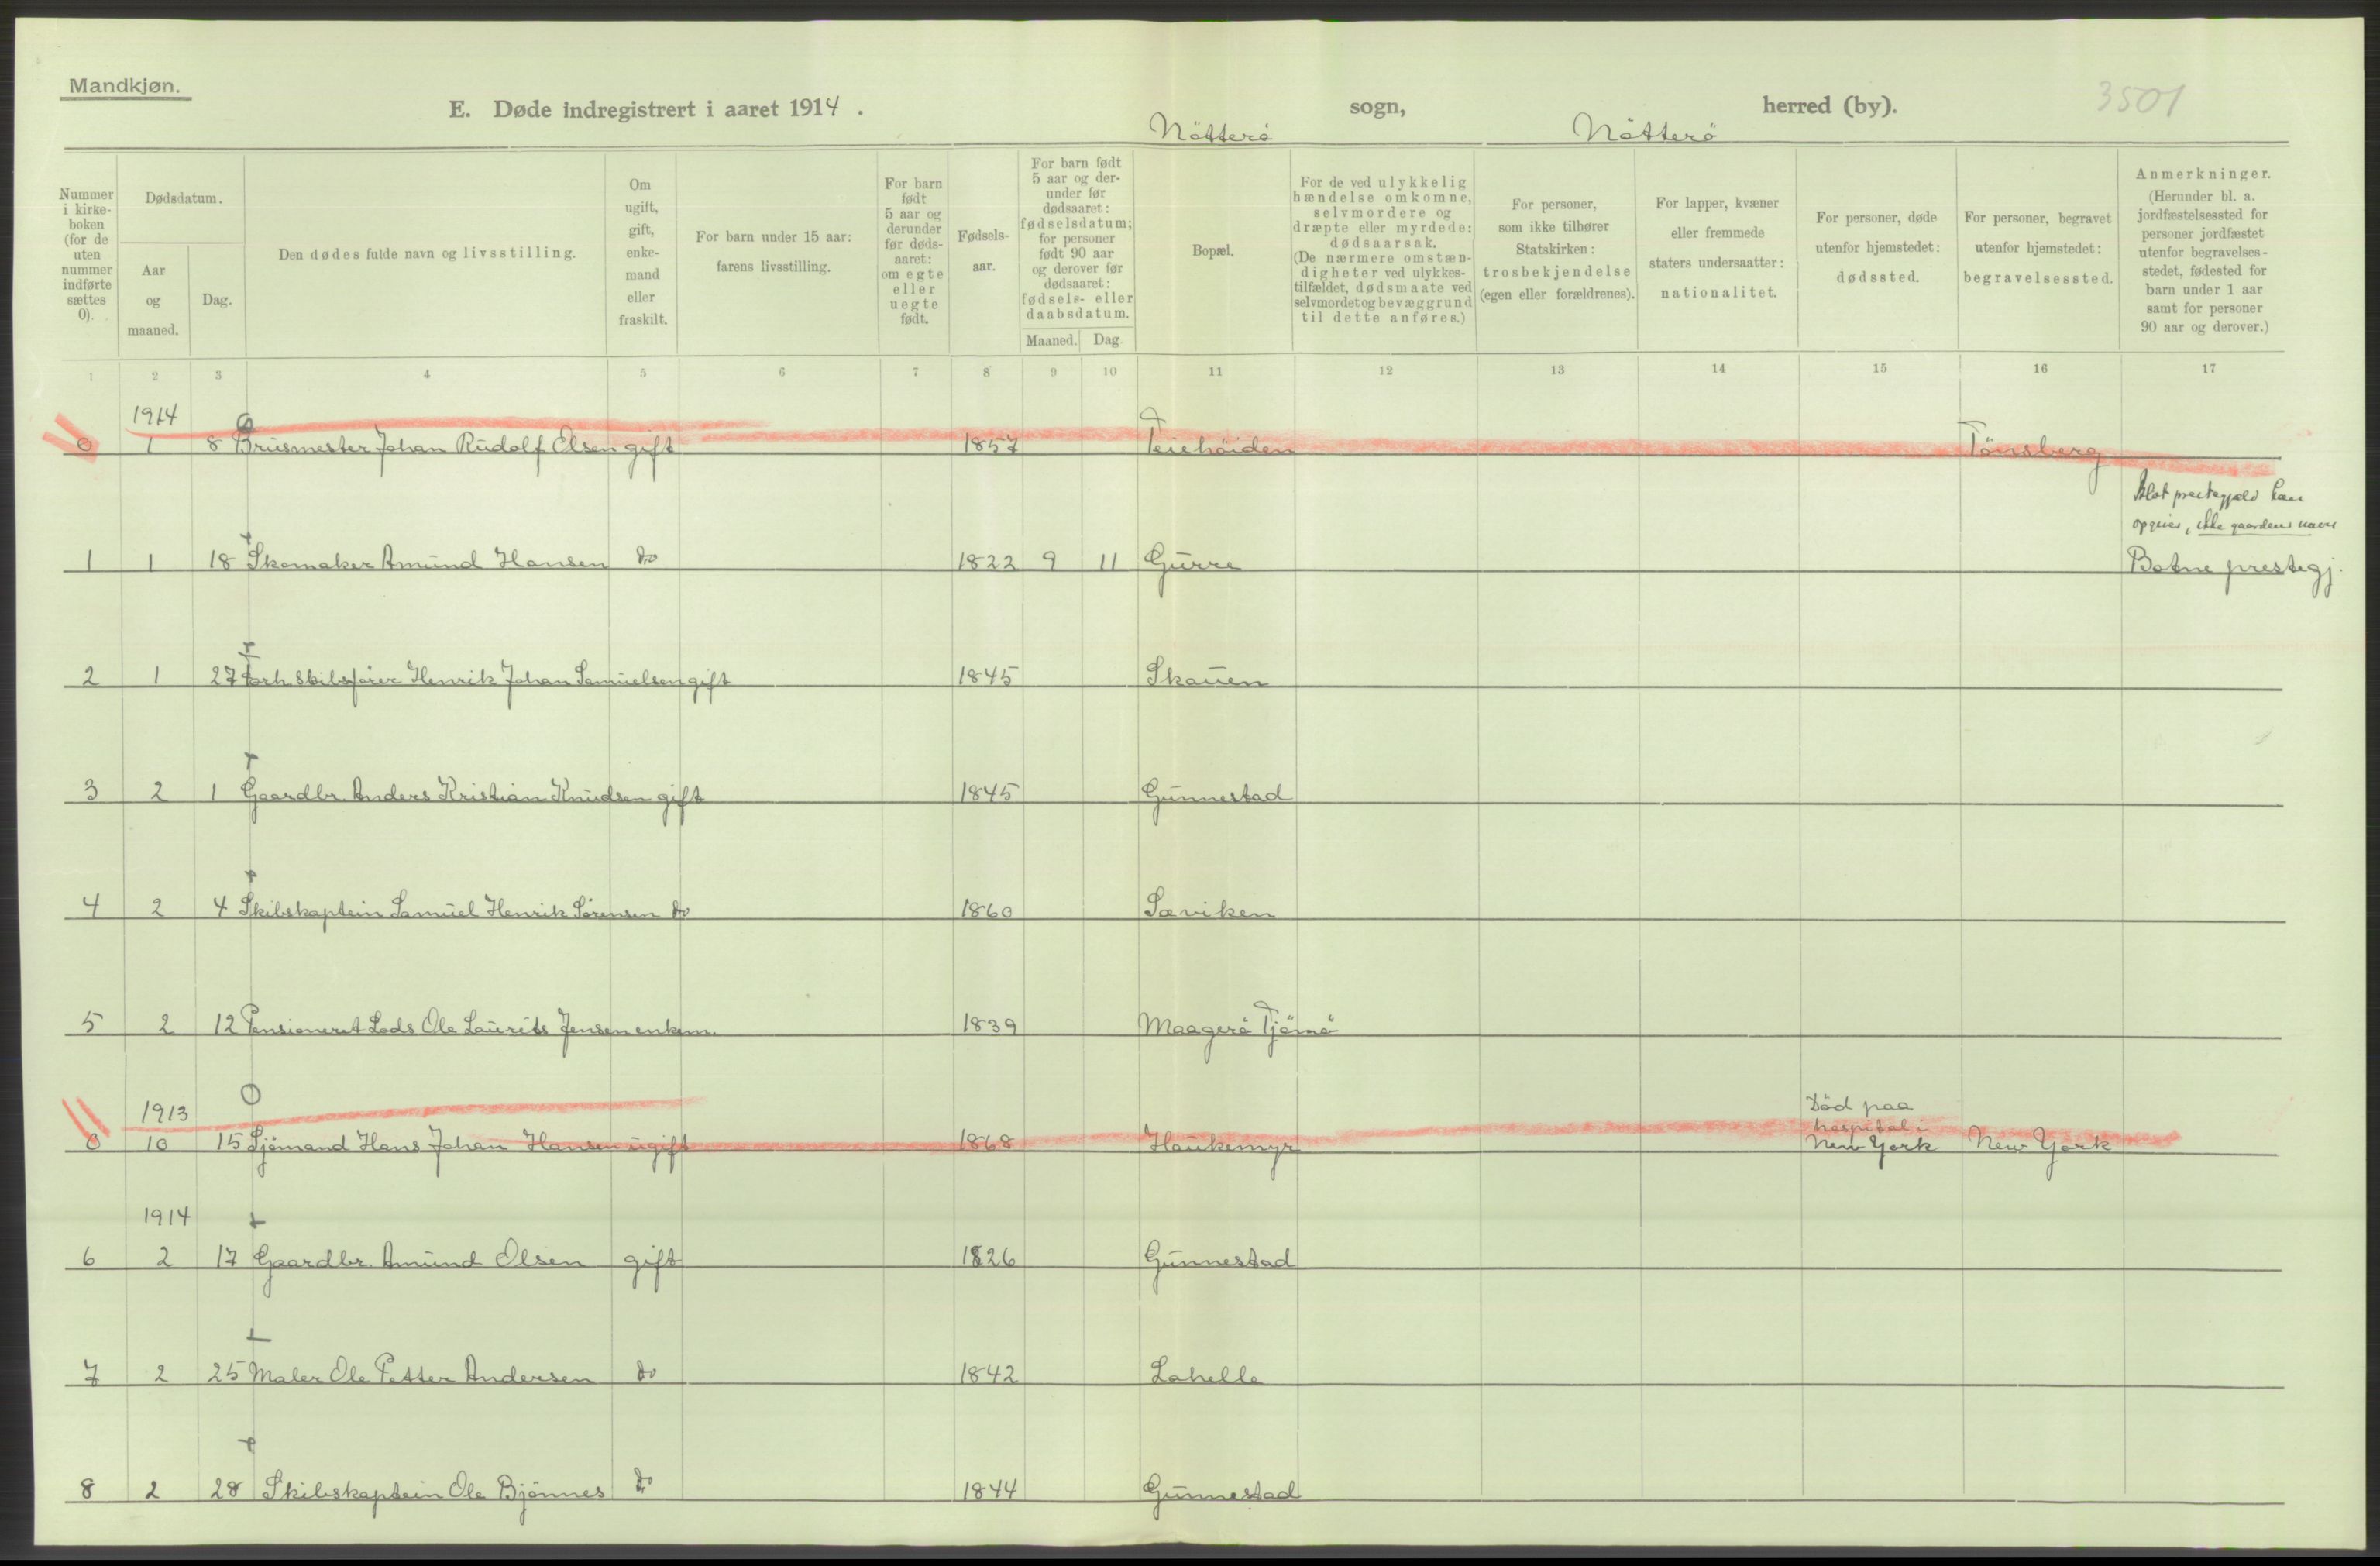 Mandkjøn.
E. Døde indregistrert i aaret 1914.
Nötterö sogn, Nötterö herred (by).
3501
Nummer i kirke-boken (for de uten nummer indførte sættes 0).
Dødsdatum.
Aar og maaned.
Dag.
Den dødes fulde navn og livsstilling.
Om ugift, gift, enke-mand eller fraskilt.
For barn under 15 aar: farens livsstilling.
For barn født 5 aar og derunder før døds-aaret: om egte eller uegte født.
Fødsels-aar.
For barn født 5 aar og der-under før dødsaaret: fødselsdatum; for personer født 90 aar og derover før dødsaaret: fødsels- eller daabsdatum.
Maaned. Dag.
Bopæl.
For de ved ulykkelig hændelse omkomne, selvmordere og dræpte eller myrdede: dødsaarsak. (De nærmere omstæn-digheter ved ulykkes-tilfældet, dødsmaate ved selvmordet og bevæggrund til dette anføres.)
For personer, som ikke tilhører Statskirken: trosbekjendelse (egen eller forældrenes).
For lapper, kvæner eller fremmede staters undersaatter: nationalitet.
For personer, døde utenfor hjemstedet: dødssted.
For personer, begravet utenfor hjemstedet: begravelsessted.
Anmerkninger. (Herunder bl. a. jordfæstelsessted for personer jordfæstet utenfor begravelses-stedet, fødested for barn under 1 aar samt for personer 90 aar og derover.)
1 2 3 4 5 6 7 8 9 10 11 12 13 14 15 16 17
1914
0 1 8 Brusmester Johan Rudolf Olsen gift 1857 Teiehöiden Tönsberg
Blot prestegjeld kan
opgives, ikke gaardens navn
1 1 18 Skomaker Amund Hansen do 1822 9 11 Gurre Botne prestegj.
2 1 27 Forh. Skibsfører Henrik Johan Samuelsen gift 1845 Skauen
3 2 1 Gaardbr. Anders Kristian Knudsen gift 1845 Gunnestad
4 2 4 Skibskaptein Samuel Henrik Sörensen do 1860 Sæviken
5 2 12 Pensioneret Lods Ole Laurits Jensen enkem. 1839 Maagerö Tjömö
1913
Död paa
hospital i
0 10 15 Sjömand Hans Johan Hansen ugift 1868 Haukemyr New York New York
1914
6 2 17 Gaardbr. Amund Olsen gift 1826 Gunnestad
7 2 25 Maler Ole Petter Andersen do 1842 Lahelle
8 2 28 Skibskaptein Ole Bjönnes do 1844 Gunnestad